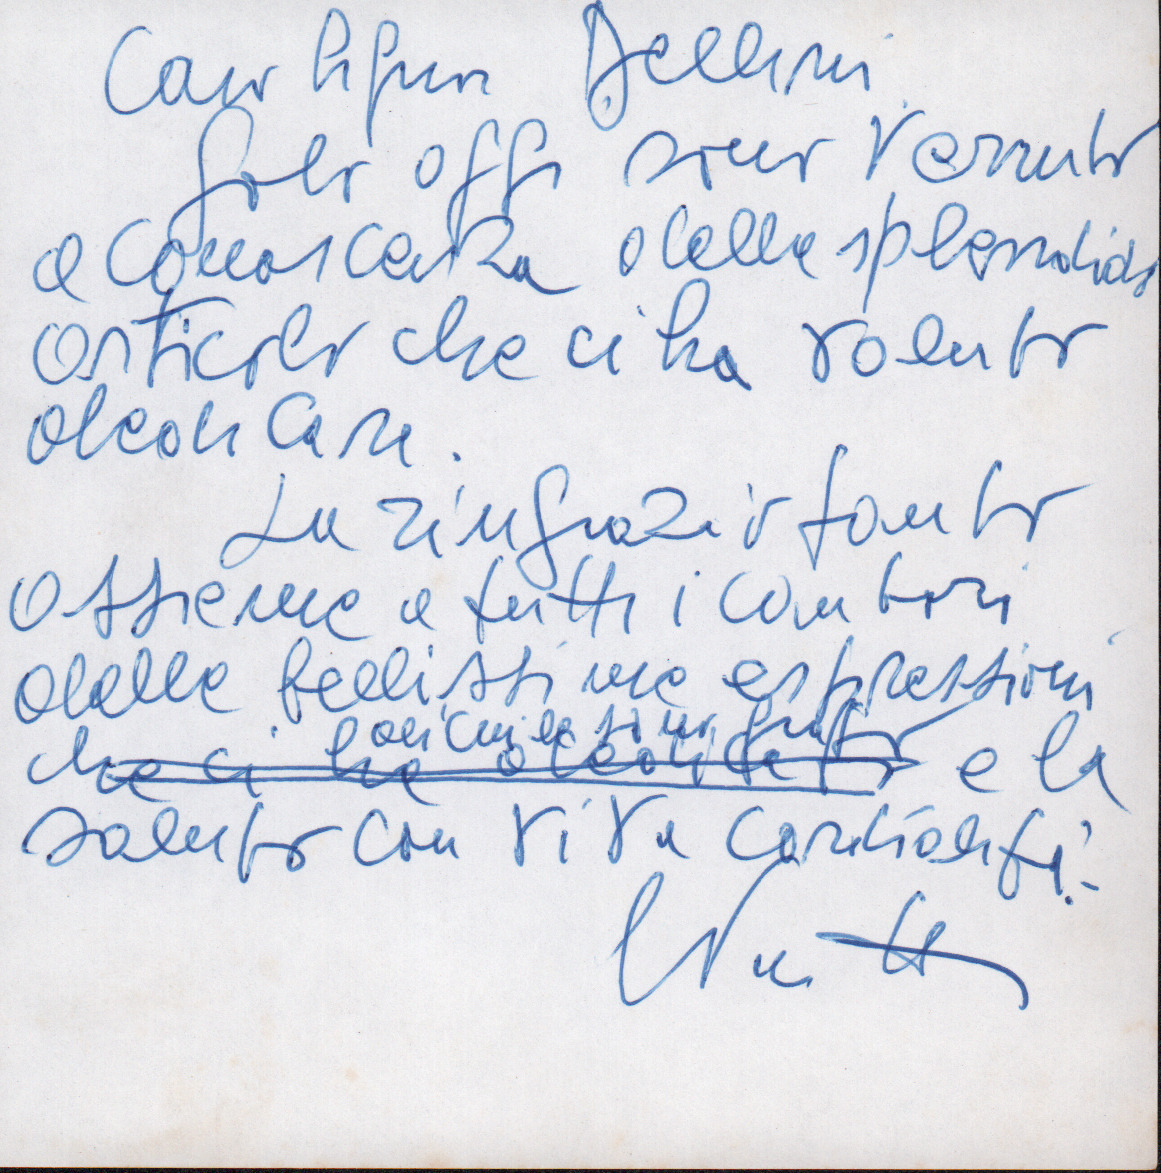 Caro Signor Bellini
Solo oggi sono venuto
a conoscenza dello splendido
articolo che ci ha voluto
dedicare.
La ringrazio tanto
assieme a tutti i cantori
delle bellissime espressioni
che ci ha dedicato e la
saluto con viva cordialità.